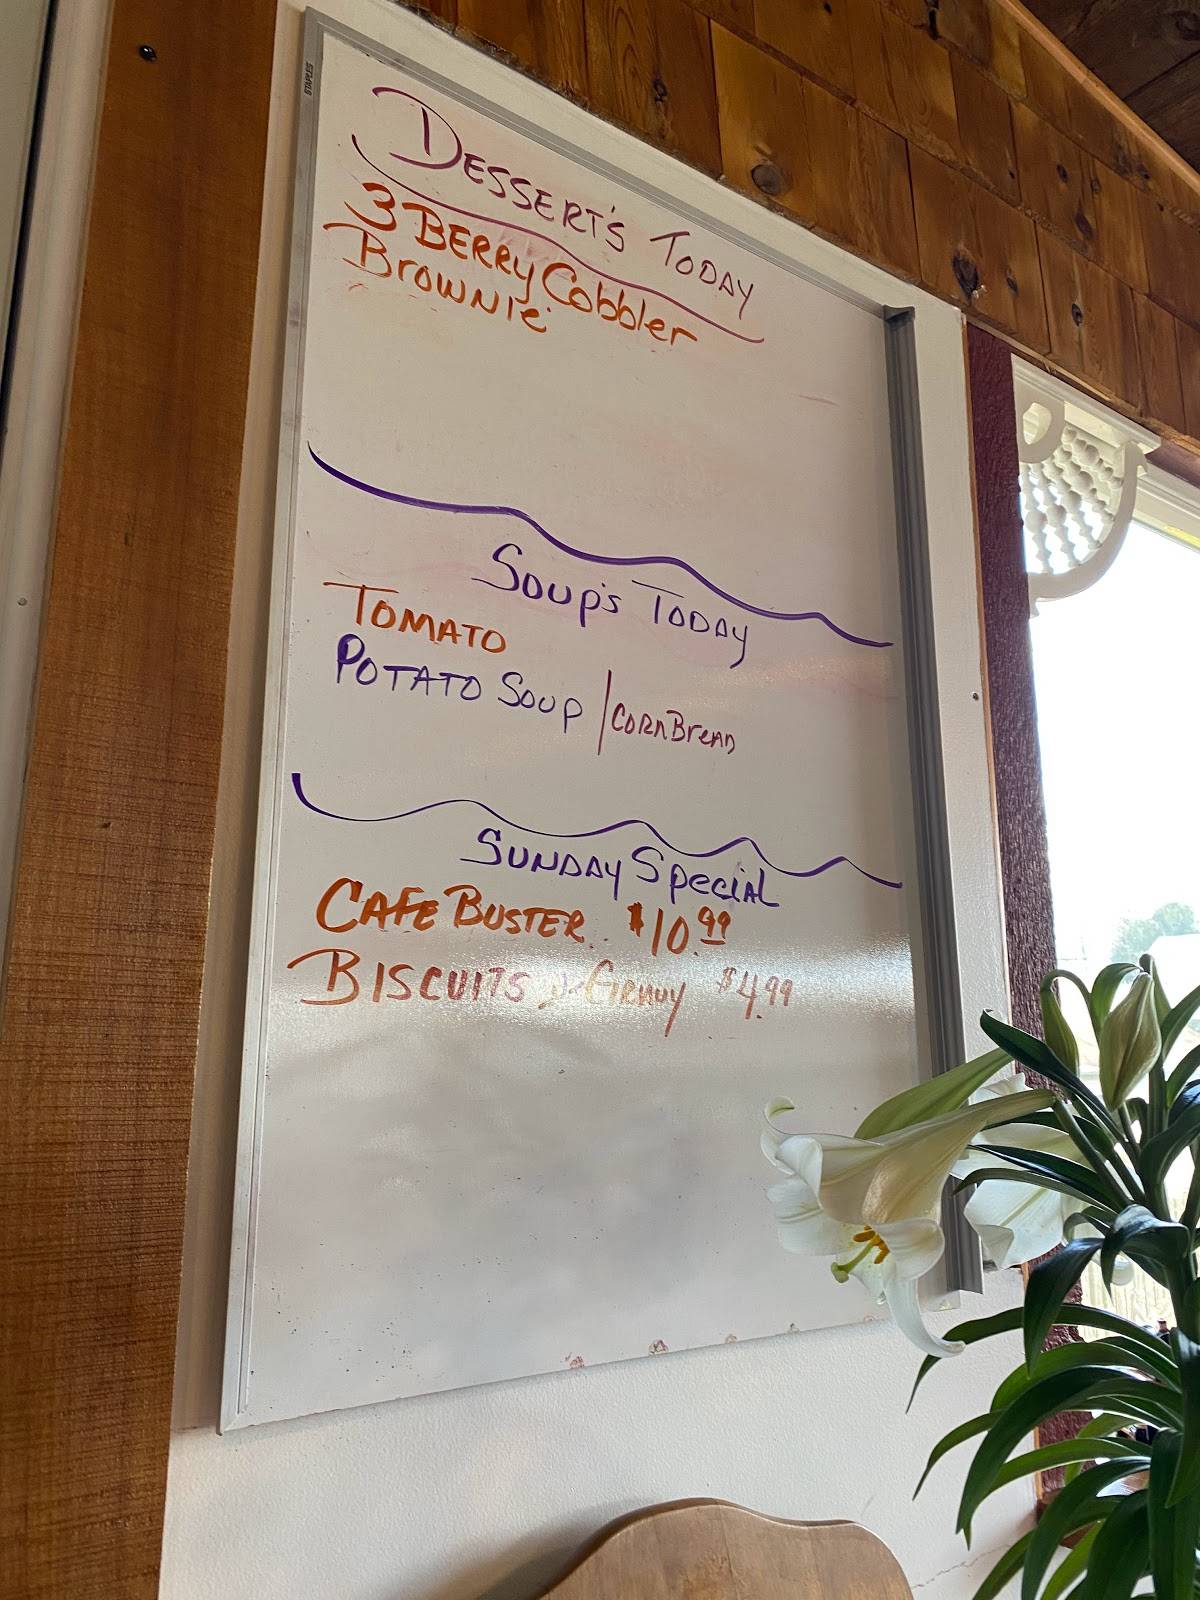 STAPLES
DESSERT'S TODAY
3 BERRY Cobbler
BrOWNIE
Soup's TODAY
TOMATO
POTATO Soup / CORNBreAD
SUNDAY SPeciAL
CAFE BUSTER $10.99
BISCUITS & GrAvy $4.99